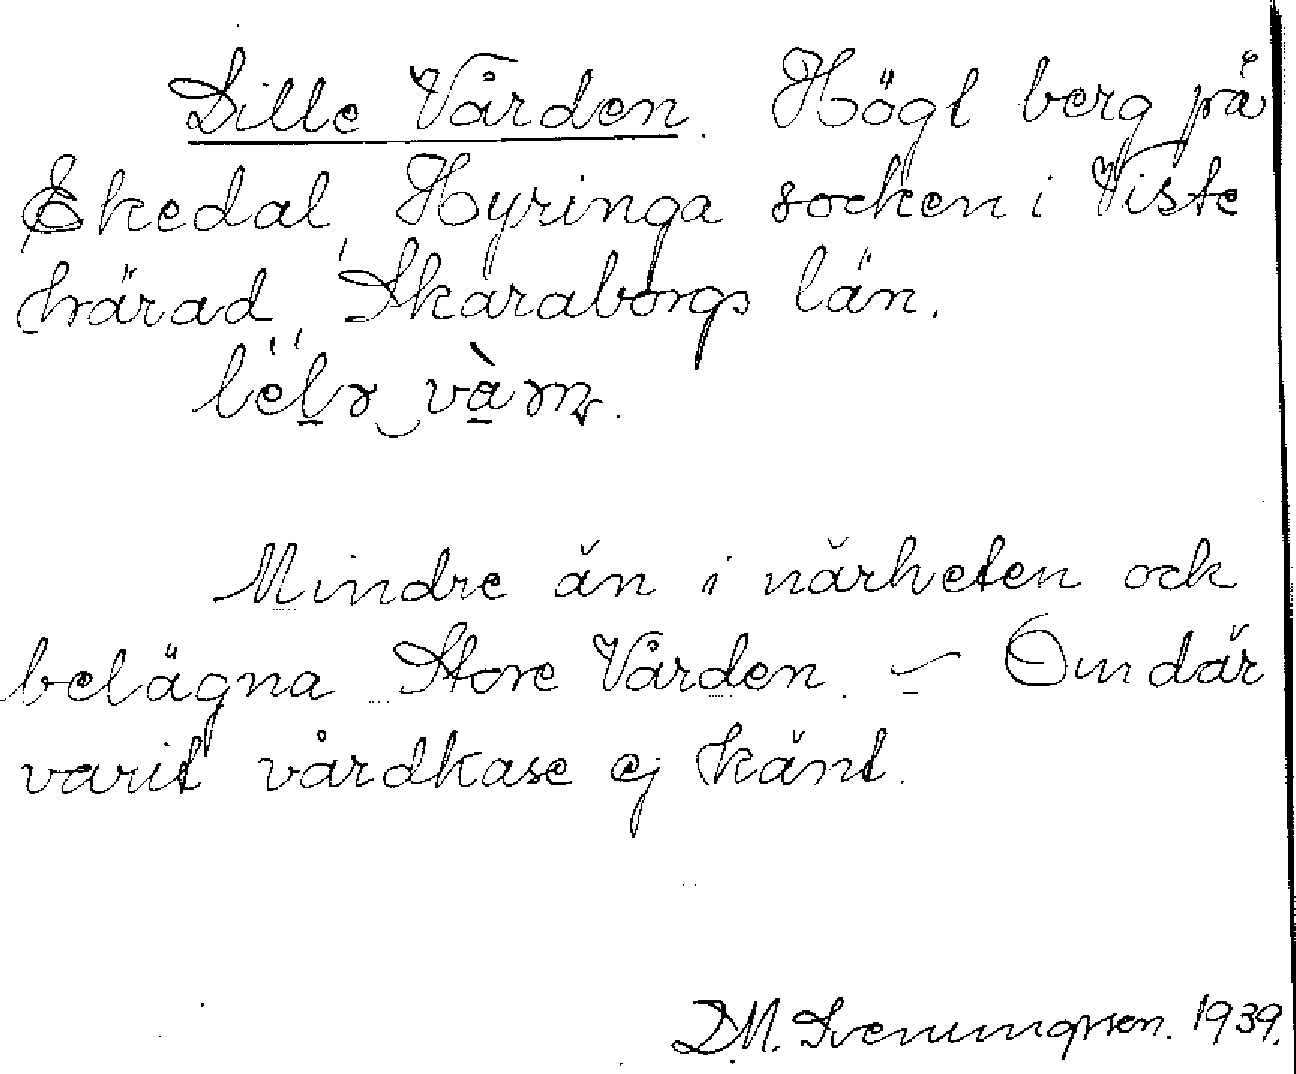 Lille Vården. Högt berg på
Ekedal, Hyringa socken i Viste
härad, Skaraborgs län.
Mindre än i närheten ock
belägna Store Vården. – Om där
varit vårdkase ej känt.
D.M. Svenungsson. 1939.